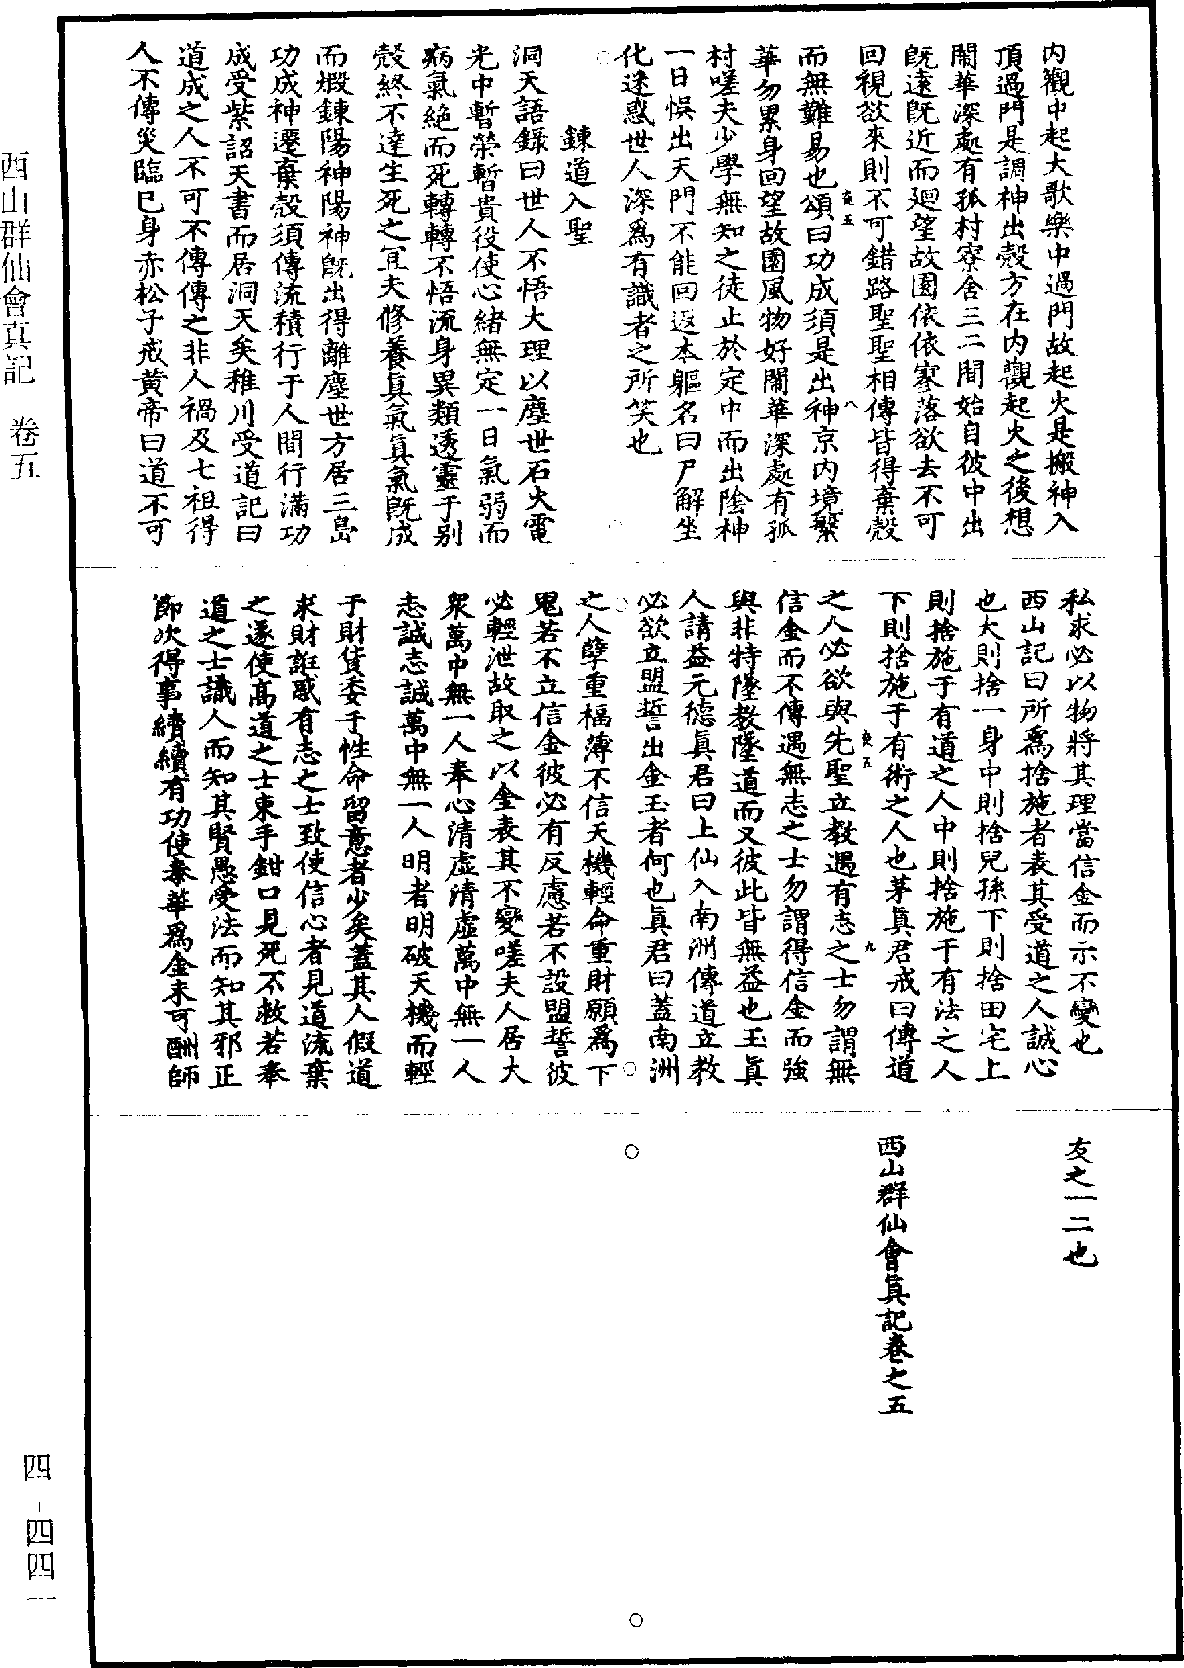 内觀中起大歌樂中過門故起火是搬神入
頂過門是調神出殼方在内觀起火之後想
閙華深處有孤村寮舍三二間始自彼中出
旣遠旣近而廻望故園依依寥落欲去不可
回視欲來則不可錯路聖聖相傳皆得棄殼
而無難易也頌曰功成須是出神京内境繁
華勿累身回望故園風物好閙華深處有孤
村嗟夫少學無知之徒止於定中而出陰神
一日悞出天門不能回返本軀名曰尸解坐
化迷惑世人深爲有識者之所笑也
鍊道入聖
洞天語録曰世人不悟大理以塵世石火電
光中暫榮暫貴役使心緒無定一日氣弱而
病氣絶而死轉轉不悟流身異類透靈于别
殼終不達生死之冝夫修養眞氣眞氣旣成
而煅鍊陽神陽神旣出得離塵世方居三島
功成神遷棄殼須傳流積行于人間行滿功
成受紫詔天書而居洞天矣稚川受道記曰
道成之人不可不傳傳之非人禍及七祖得
人不傳災臨已身赤松子戒黄帝曰道不可
私求必以物將其理當信金而示不變也
西山記曰所爲捨施者表其受道之人誠心
也大則捨一身中則捨兒孫下則捨田宅上
則捨施于有道之人中則捨施于有法之人
下則捨施于有術之人也茅眞君戒曰傳道
之人必欲與先聖立教遇有志之士勿謂無
信金而不傳遇無志之士勿謂得信金而強
與非特墜教墜道而又彼此皆無益也玉眞
人請益元德眞君曰上仙入南洲傳道立教
必欲立盟誓出金玉者何也眞君曰蓋南洲
之人孽重福薄不信天機輕命重財願爲下
鬼若不立信金彼必有反慮若不設盟誓彼
必輕泄故取之以金表其不變嗟夫人居大
衆萬中無一人奉心清虚清虚萬中無一人
志誠志誠萬中無一人明者明破天機而輕
于財貨委于性命留意者少矣蓋其人假道
求財誑惑有志之士致使信心者見道流棄
之遂使高道之士束手鉗口見死不救若奉
道之士識人而知其賢愚受法而知其邪正
節次得事續續有功使泰華爲金未可酬師
友之一二也
西山群仙會眞記卷之五
西山群仙會真記　卷五
四－四四一